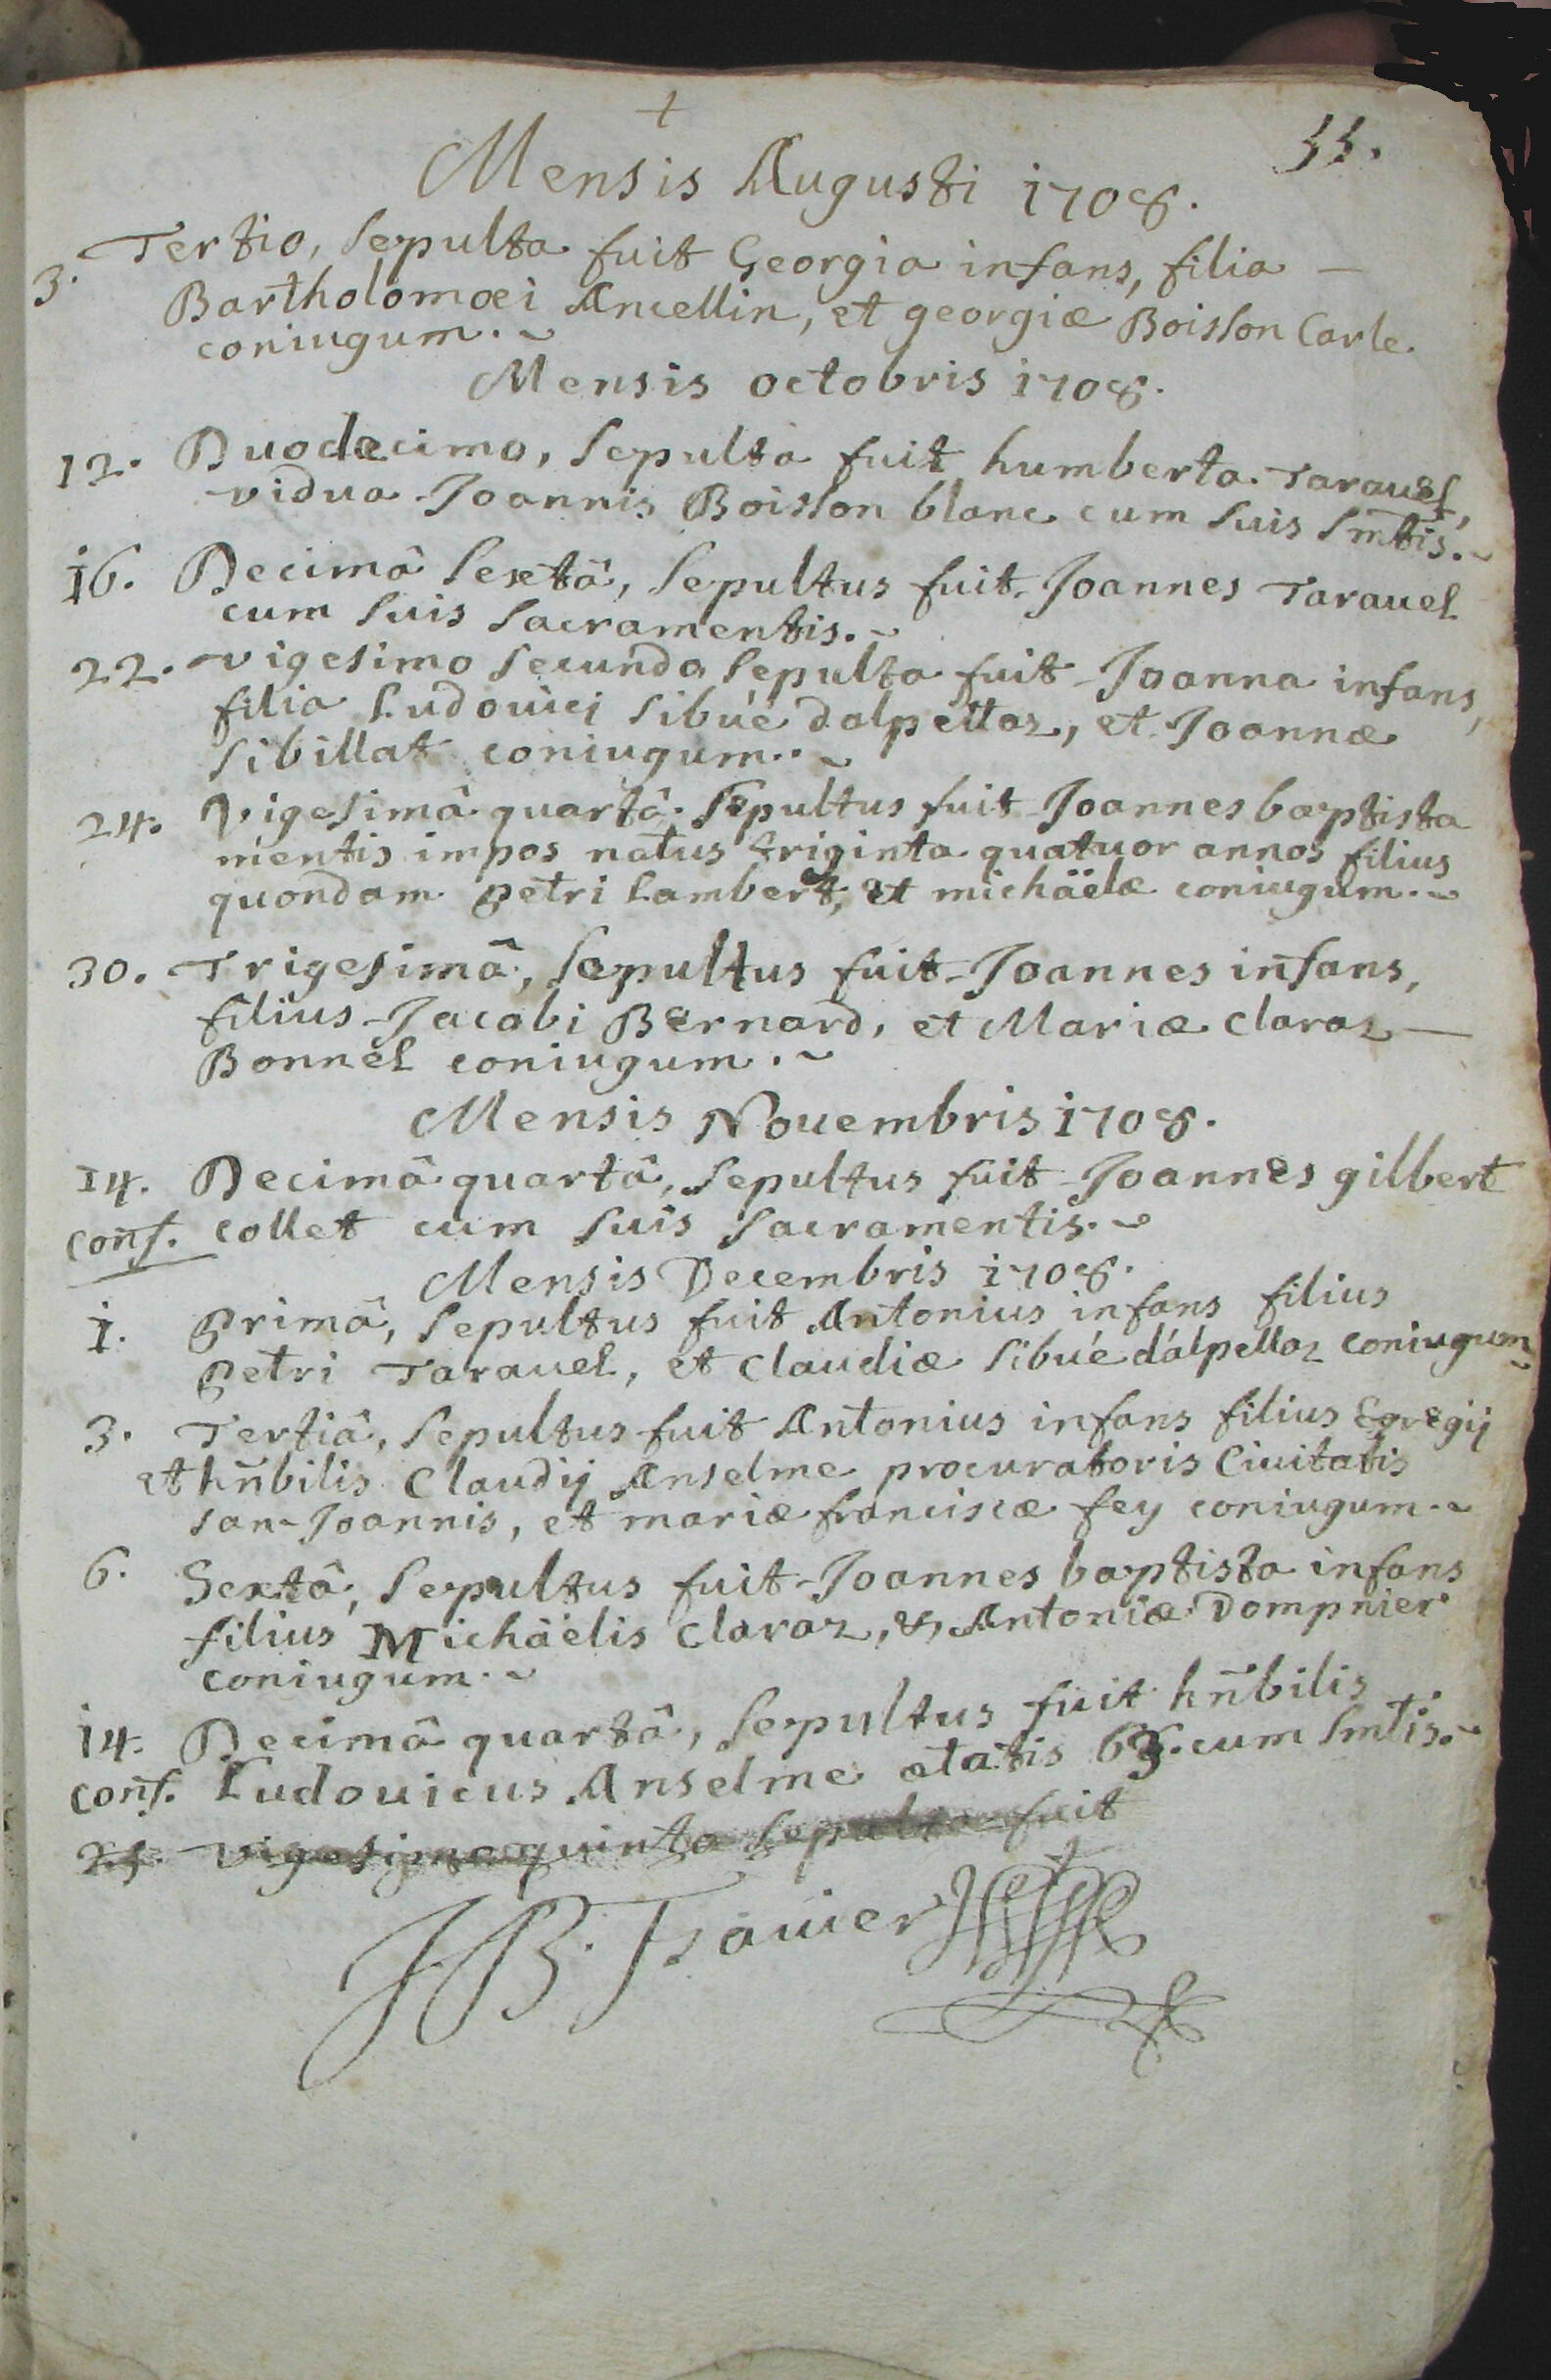 +
55.
Mensis Augusti 1708.
3. Tertio, sepulta fuit Georgia infans, filia —
Bartholomœi Ancellin, et georgiæ Boisson Carle
coniugum. ~
Mensis octobris 1708.
12. Duodecimo, sepulta fuit humberta Tarauel,
vidua Joannis Boisson blanc cum suis smtis. ~
16. Decimâ sextâ, sepultus fuit Joannes Tarauel
cum suis sacramentis. ~
22. vigesimo secunda sepulta fuit Joanna infans,
filia Ludouici sibué dalpettaz, et Joannæ
sibillat coniugum. ~
24. Vigesimâ quartâ sepultus fuit Joannes baptista
mentis impos natus triginta quatuor annos filius
quondam petri Lambert, et michäelæ coniugum. ~
30. Trigesimâ, sepultus fuit Joannes infans,
filius Jacobi Bernard, et Mariæ claraz —
Bonnel coniugum. ~
Mensis Nouembris 1708.
14. Decimâ quartâ, sepultus fuit Joannes gilbert
conf. collet cum suis sacramentis. ~
Mensis Decembris 1708.
1. Primâ, sepultus fuit Antonius infans filius
petri Tarauel, et claudiæ sibué dálpettaz coniugum ~
3. Tertiâ, sepultus fuit Antonius infans filius Egregij
et hñbilis Claudij Anselme procuratoris Ciuitatis
san-Joannis, et mariæ franciscæ fey coniugum. ~
6. Sextâ, sepultus fuit Joannes baptista infans
filius Michäelis claraz, & Antoniæ Dompnier
coniugum. ~
14. Decimâ quartâ, sepultus fuit hñbilis
conf. Ludouicus Anselme ætatis 63. cum smtis. ~
25. vigesima quinta sepulta fuit
JB. Trauier